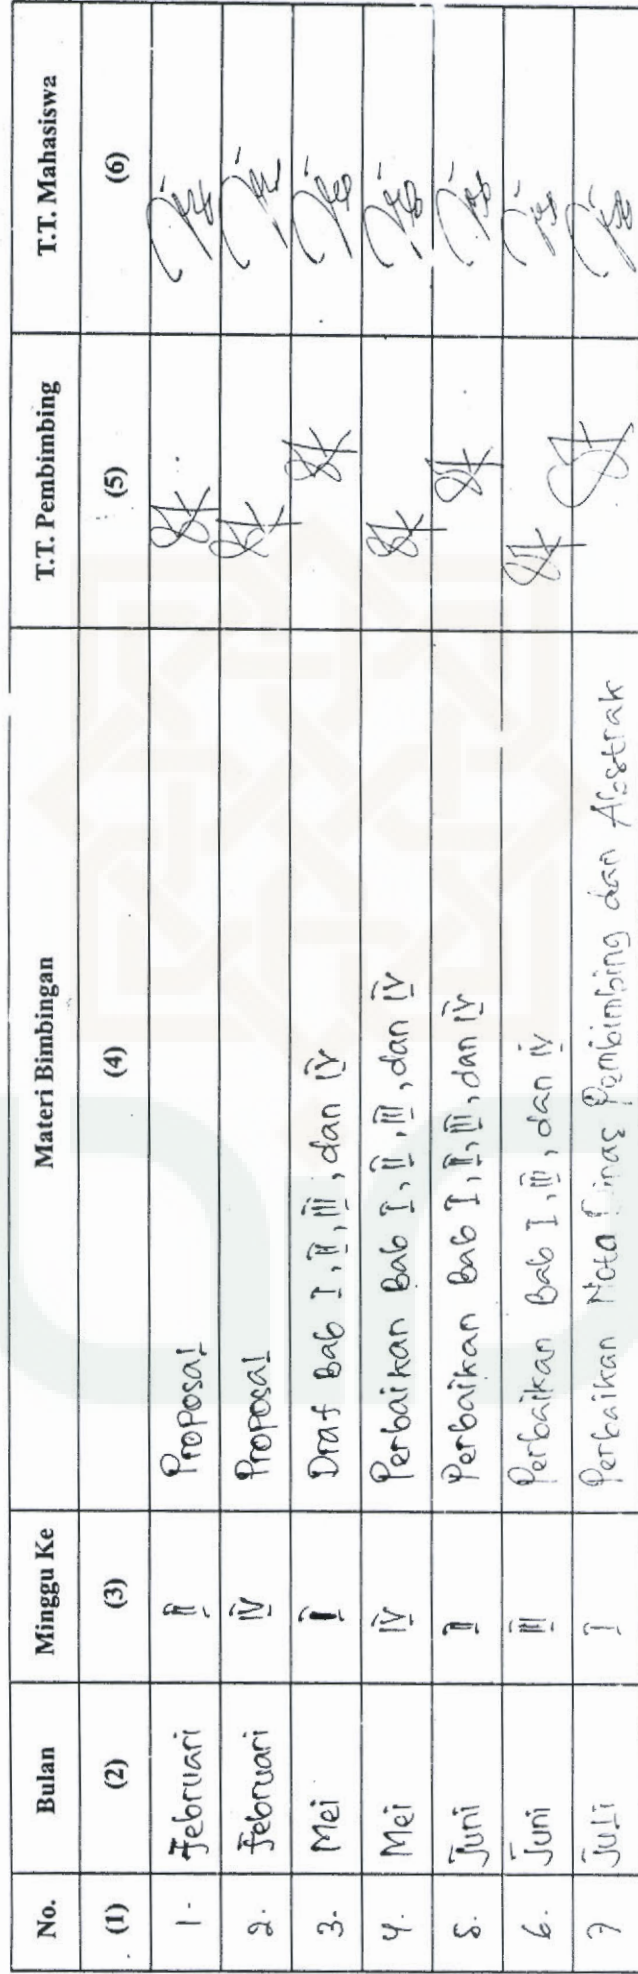 No. Bulan Minggu Ke Materi Bimbingan T.T. Pembimbing T.T. Mahasiswa
(1) (2) (3) (4) (5) (6)
1. Februari II Proposal
2. Februari IV Proposal
3. Mei I Draf Bab I, II, III, dan IV
4. Mei IV Perbaikan Bab I, II, III, dan IV
5. Juni II Perbaikan Bab I, II, III, dan IV
6. Juni III Perbaikan Bab I, III, dan IV
7 Juli I Perbaikan Nota Dinas Pembimbing dan Abstrak